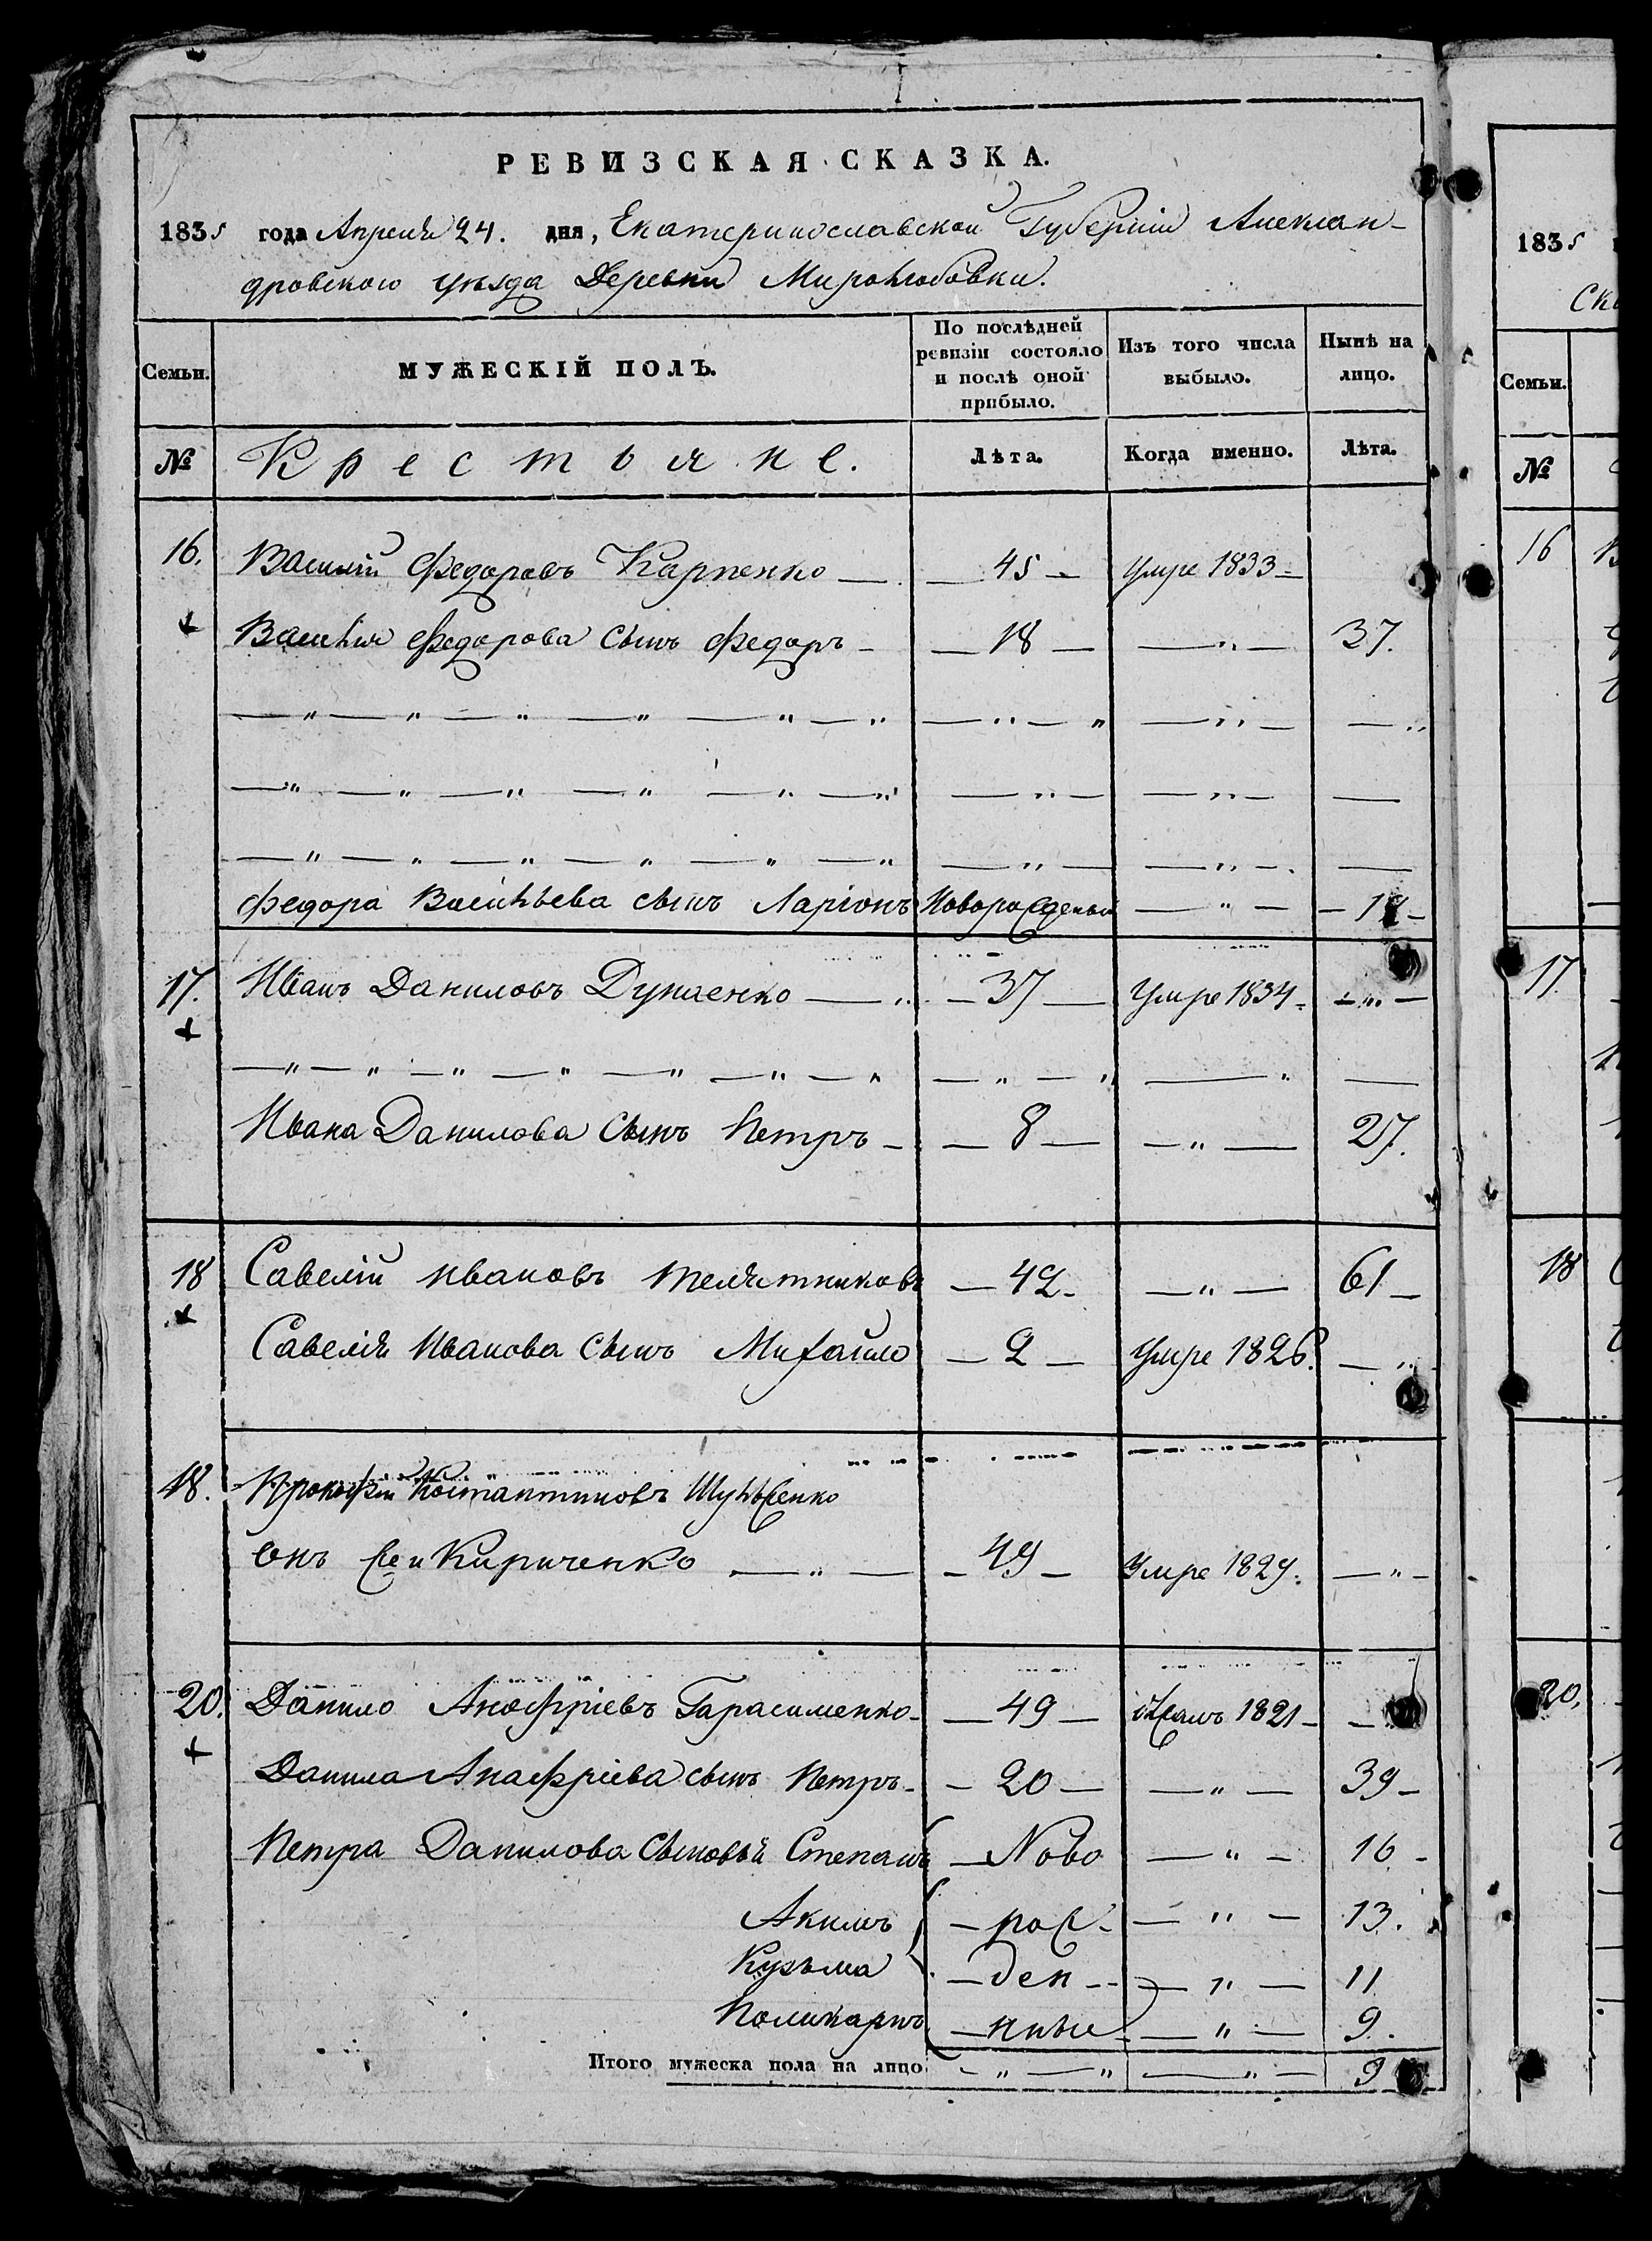 РЕВИЗСКАЯ СКАЗКА.
1835 года Апреля 24. дня, Екатеринославской Губерніи Алексан-
дровского уезда Деревни Миролюбовки.
Семьи. МУЖЕСКІЙ ПОЛЪ. По послѣдней ревизіи состояло и послѣ оной прибыло. Изъ того числа выбыло. Нынѣ на лицо.
№ Крестьяне. Лѣта. Когда именно. Лѣта.
16. Василій Федоровъ Карпенко — 45 — умре 1833 —
Василія Федорова сынъ Федоръ — 18 — — " — 37.
— " — " — " — " — " — " — " — " — " — — "
— " — " — " — " — " — " — " — — " — —
— " — " — " — " — " — " — " — — " — —
Федора Васильева сынъ Ларіонъ Новорожденый — " —
17. Иванъ Даниловъ Дунаенко — " — 37 — Умре 1834. — " —
— " — " — " — " — " — " — " — " — " — " —
Ивана Данилова сынъ Петръ — — 8 — — " — 27.
18 Савелій Ивановъ Телятниковъ — 42 — — " — 61 —
Савелія Иванова сынъ Михайло — 2 — Умре 1826. — "
18. Прокофій Костантиновъ
онъ же и Кириченко — " — — 49 — Умре 1829. — " —
20. Данило Анофріевъ Гарасименко — — 49 — 1821 — —
Данила Анафріева сынъ Петръ — — 20 — — " — 39 —
Петра Данилова сыновья Степанъ — Ново — " — 16 —
Акимъ — рож — — " — 13.
Кузьма — ден — — " — 11
Поликарпъ — ные — " — 9.
Итого мужеска пола на лицо — " — " — " — 9
1835
Ска
Семьи.
№
16
17
18
20.